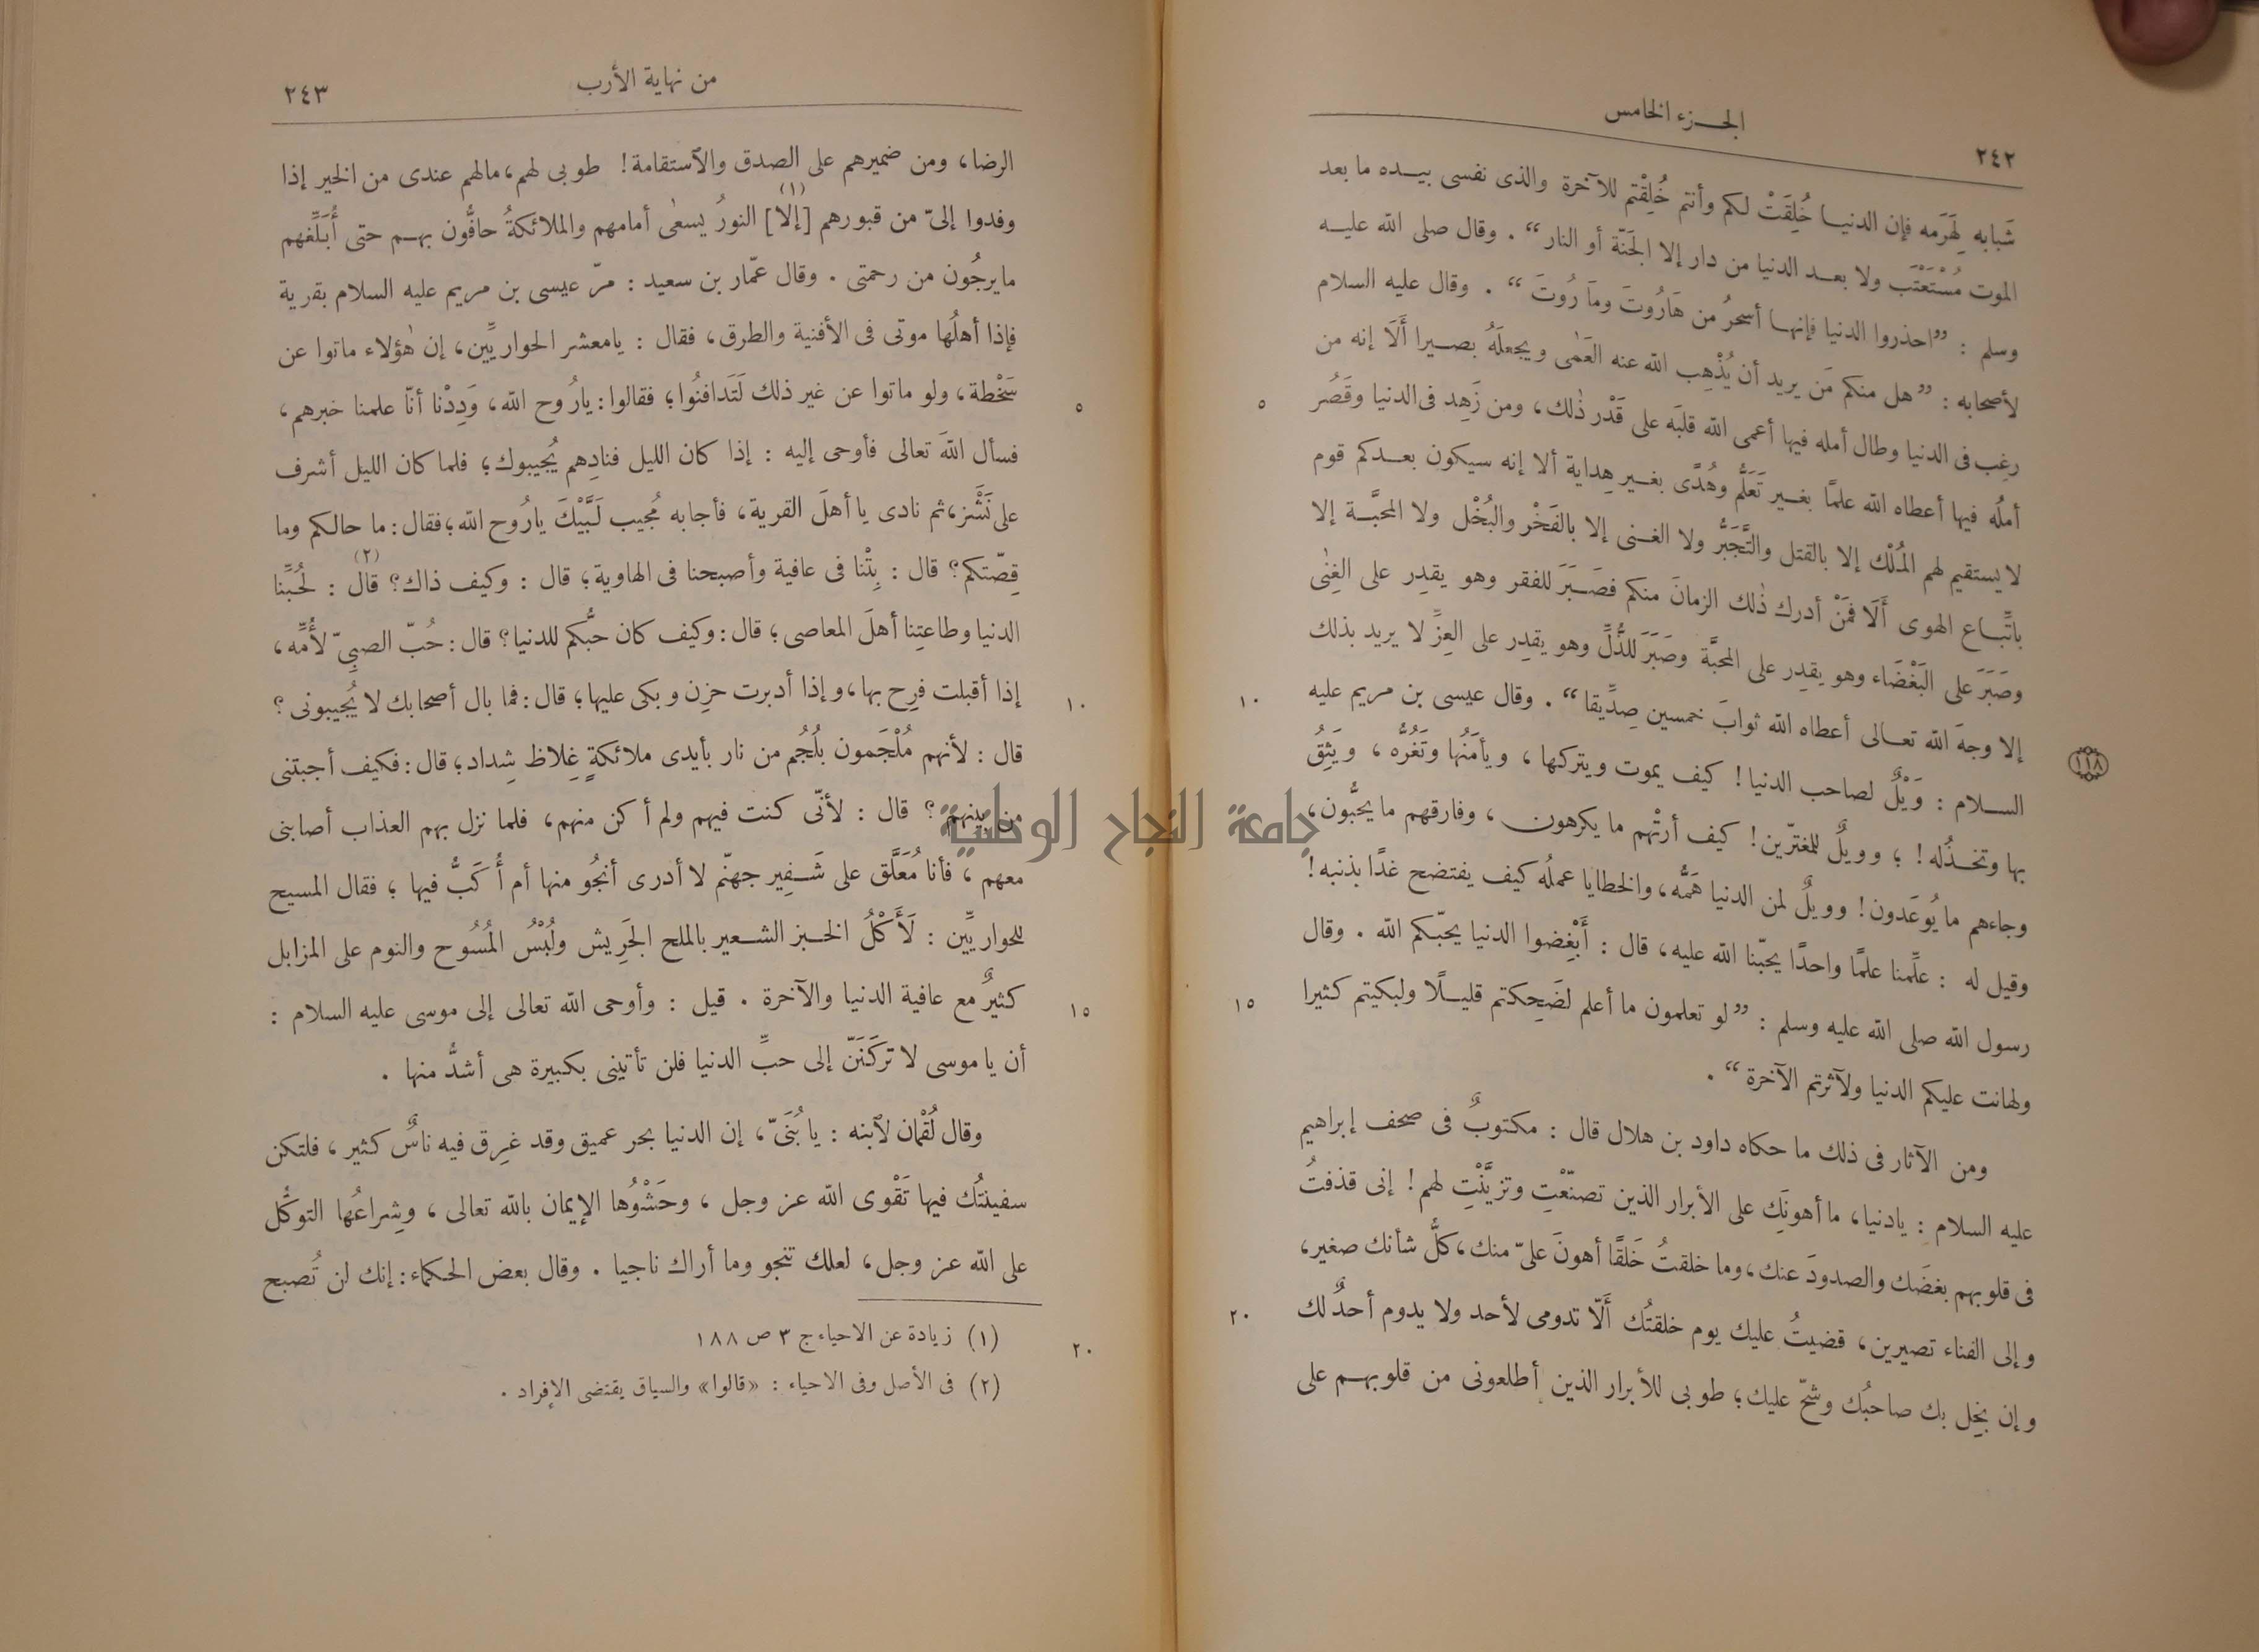 ٢٤٢
الجـزء الخامس
شَبابه لِهَرَمه فإن الدنيـا خُلِقَتْ لكم وأنتم خُلِقْتم للآخرة والذى نفسى بيـده ما بعد
الموت مُسْتَعْتَب ولا بعـد الدنيا من دار إلا الجَنّة أو النار“ . وقال صلى الله عليـه
وسلم : ”احذروا الدنيا فإنهـا أسحرُ من هَارُوتَ ومَا رُوتَ“ . وقال عليه السلام
لأصحابه : ”هل منكم مَن يريد أن يُذْهِب الله عنه العَمٰى ويجعلَهُ بصـيرا أَلَا إنه من
٥
رغِب فى الدنيا وطال أمله فيها أعمى الله قلبَه على قَدْر ذٰلك، ومن زَهِد فى الدنيا وقَصُر
أملُه فيها أعطاه الله علمًا بغـير تَعَلُّم وهُدًى بغـير هِداية ألا إنه سيكون بعـدكم قوم
لا يستقيم لهم المُلْك إلا بالقتل والتَّجَبُّر ولا الغـنى إلا بالفَخْر والبُخْل ولا المحبَّـة إلا
باتِّبـاع الهوى أَلَا فمَنْ أدرك ذٰلك الزمانَ منكم فصَـبَرَ للفقر وهو يقدِر على الغِنٰى
وصَبَرَ على البَغْضَاء وهو يقدِر على المحبَّة وصَبَرَ للذُّلِّ وهو يقدِر على العِزِّ لا يريد بذلك
١٠
إلا وجهَ الله تعـالى أعطاه الله ثوابَ خمسين صِدِّيقا“ . وقال عيسى بن مريم عليه
١١٨
السـلام : وَيْلٌ لصاحب الدنيا! كيف يموت ويتركها، ويأمَنُها وتَغُرُّه، ويَثِقُ
بها وتخـذُله! ؛ وويلٌ للمغترّين! كيف أرتْهم ما يكرهون، وفارقهم ما يحبُّون،
وجاءهم ما يُوعَدون! وويلٌ لمن الدنيا هَمُّه، والخطايا عملُه كيف يفتضح غدًا بذنبه!
وقيل له : علِّمنا علمًا واحدًا يحبّنا الله عليه، قال : أَبْغِضوا الدنيا يحبّكم الله . وقال
١٥
رسول الله صلى الله عليه وسلم : ”لو تعلمون ما أعلم لضَحِكتم قليـلًا ولبكيتم كثيرا
ولهانت عليكم الدنيا ولآثرتم الآخرة“ .
ومن الآثار فى ذلك ما حكاه داود بن هلال قال : مكتوبٌ فى صحف إبراهيم
عليه السلام : يادنيا، ما أهونَكِ على الأبرار الذين تصنّعْتِ وتزيَّنْتِ لهم! إنى قذفتُ
فى قلوبهم بغضَك والصدودَ عنك، وما خلقتُ خَلقًا أهونَ علىّ منك، كلُّ شأنك صغير،
٢٠
وإلى الفناء تصيرين، قضيتُ عليك يوم خلقتُك أَلّا تدومى لأحد ولا يدوم أحدٌ لك
وإن بخِل بك صاحبُك وشحّ عليك؛ طوبى للأبرار الذين أطلعونى من قلوبهـم على
من نهاية الأرب
٢٤٣
الرضا، ومن ضميرهم على الصدق والاستقامة! طوبى لهم، مالهم عندى من الخير إذا
وفدوا إلىّ من قبورهم [إلا] (١) النورُ يسعٰى أمامهم والملائكةُ حافُّون بهـم حتى أُبَلِّغهم
ما يرجُون من رحمتى . وقال عمّار بن سعيد : مرّ عيسى بن مريم عليه السلام بقرية
فإذا أهلُها موتى فى الأفنية والطرق، فقال : يا معشر الحواريِّين، إن هٰؤلاء ماتوا عن
٥
سَخْطة، ولو ماتوا عن غير ذلك لَتَدافنُوا؛ فقالوا : يا رُوح الله، وَدِدْنا أنّا علمنا خبرهم،
فسأل اللهَ تعالى فأوحى إليه : إذا كان الليل فنادِهم يُجيبوك؛ فلما كان الليل أشرف
على نَشَزٍ، ثم نادى يا أهلَ القرية، فأجابه مُجيب لَبَّيْكَ يا رُوح الله؛ فقال : ما حالكم وما
قِصّتكم؟ قال : بِتْنا فى عافية وأصبحنا فى الهاوية؛ قال : وكيف ذاك؟ قال (٢) : لحُبِّنا
الدنيا وطاعتِنا أهلَ المعاصى؛ قال : وكيف كان حبُّكم للدنيا؟ قال : حُبّ الصبىّ لأُمّه،
١٠
إذا أقبلت فرِح بها، وإذا أدبرت حزِن وبكى عليها؛ قال : فما بال أصحابك لا يُجيبونى؟
قال : لأنهم مُلْجَمون بلُجُم من نار بأيدى ملائكةٍ غِلاظ شِداد؛ قال : فكيف أجبتنى
من بينهم؟ قال : لأنّى كنت فيهم ولم أكن منهم، فلما نزل بهم العذاب أصابنى
معهم، فأنا مُعَلَّق على شَـفِير جهنّم لا أدرى أنجُو منها أم أُكَبُّ فيها؛ فقال المسيح
للحواريِّين : لَأَكْلُ الخـبز الشـعير بالملح الجَرِيش ولُبْسُ المُسُوح والنوم على المزابل
١٥
كثيرٌ مع عافية الدنيا والآخرة . قيل : وأوحى الله تعالى إلى موسى عليه السلام :
أن يا موسى لا تركَنَنّ إلى حبِّ الدنيا فلن تأتينى بكبيرة هى أشدُّ منها .
وقال لُقْمان لابنه : يا بُنَىّ، إن الدنيا بحر عميق وقد غرِق فيه ناسٌ كثير، فلتكن
سفينتُك فيها تَقْوى الله عز وجل، وحَشْوُها الإيمان بالله تعالى، وشِراعُها التوكُّل
على الله عز وجل، لعلك تنجو وما أراك ناجيا . وقال بعض الحكماء : إنك لن تُصبح
٢٠
(١) زيادة عن الاحياء ج ٣ ص ١٨٨
(٢) فى الأصل وفى الاحياء : «قالوا» والسياق يقتضى الإفراد .
جامعة النجاح الوطنية